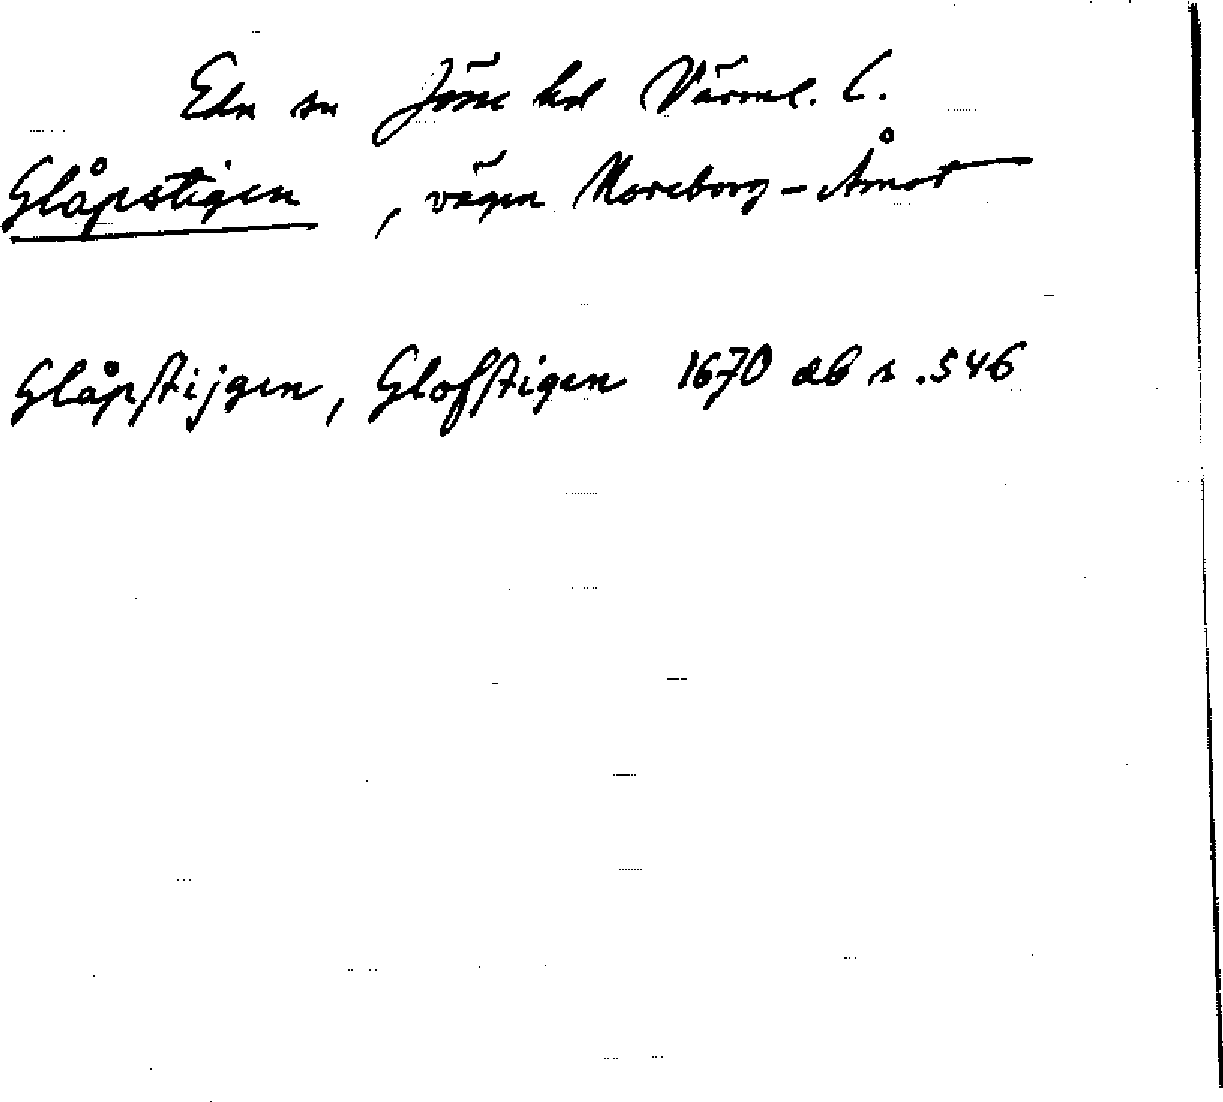 Eda sn Jösse hd Värml. l.
Glåpstigen, vägen Moreborg - Åmot
Glåpstijgen, Glofstigen 1670 db s. 546